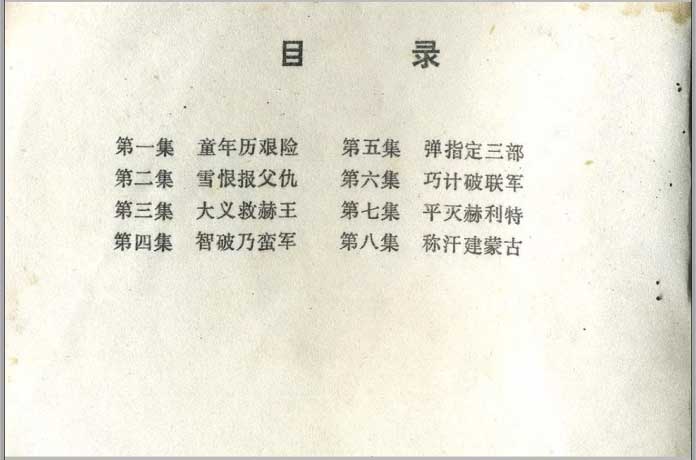 目 录
第一集 童年历艰险 第五集 弹指定三部
第二集 雪恨报父仇 第六集 巧计破联军
第三集 大义救赫王 第七集 平灭赫利特
第四集 智破乃蛮军 第八集 称汗建蒙古